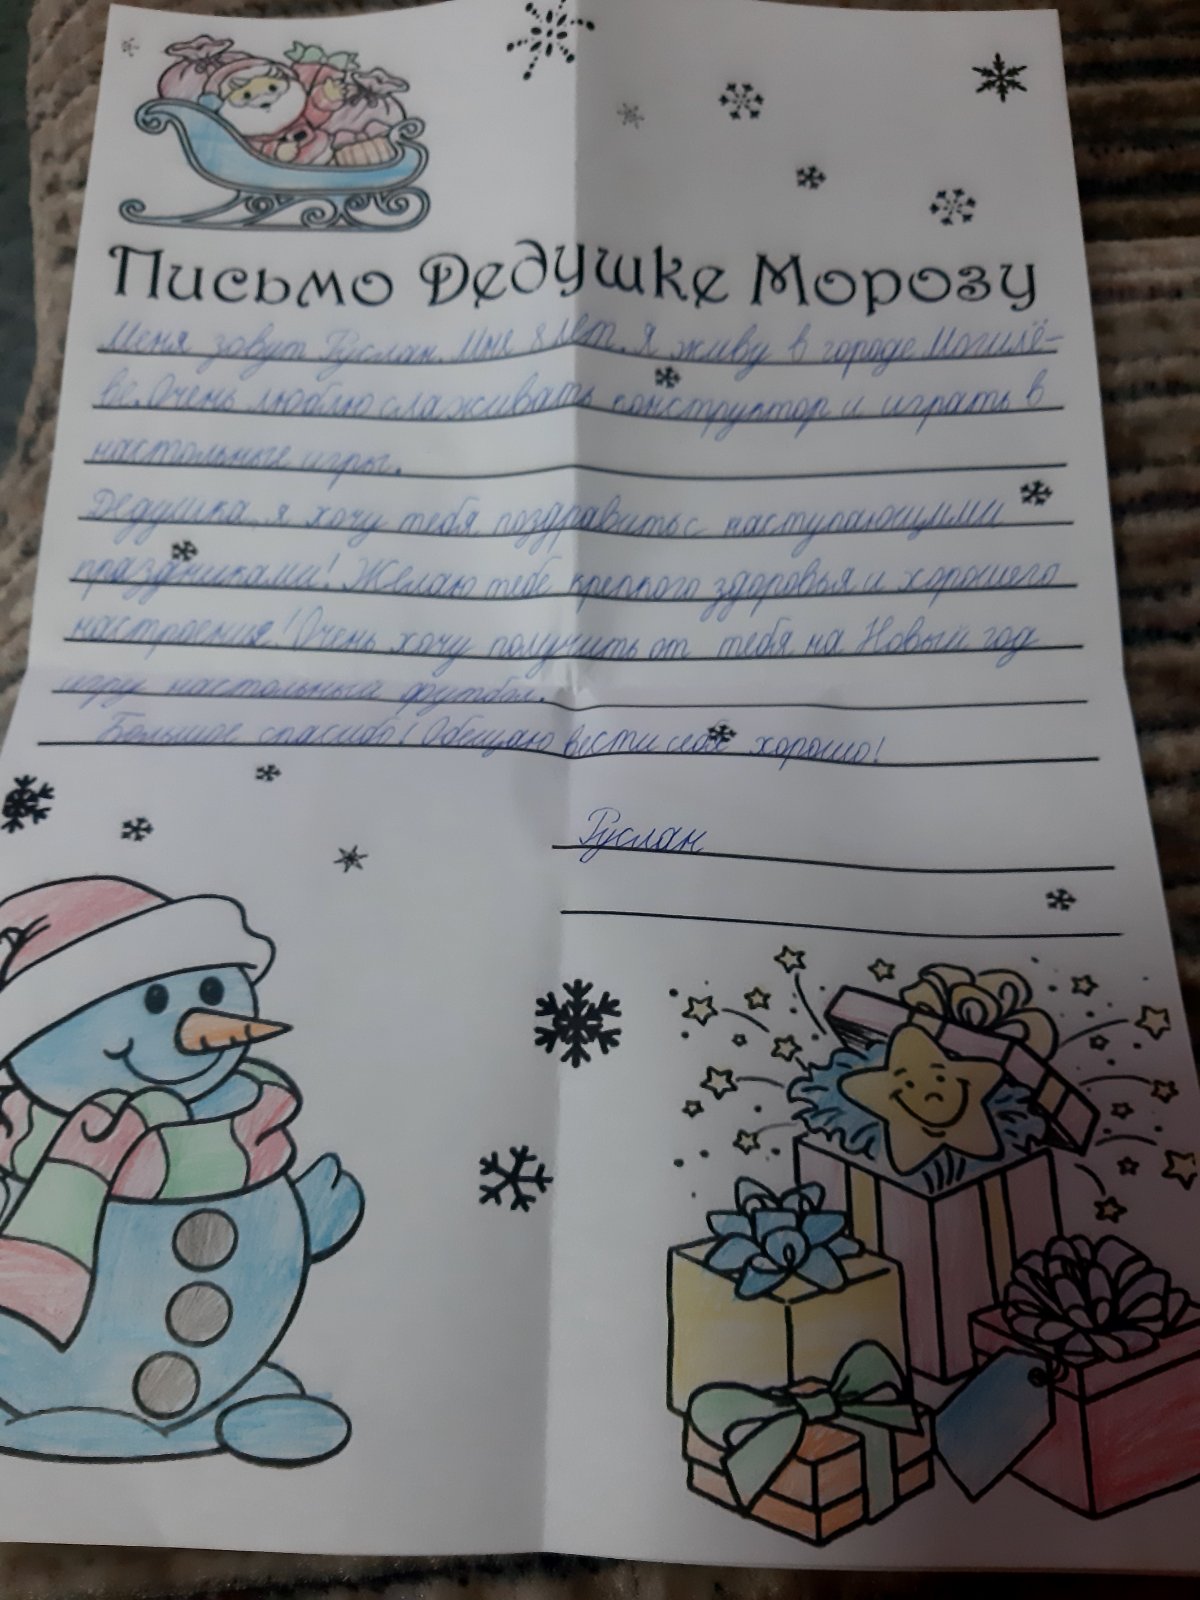 Письмо Дедушке Морозу
Меня зовут Руслан. Мне 8 лет. Я живу в городе Могилё-
ве. Очень люблю слаживать конструктор и играть в
настольные игры.
Дедушка, я хочу тебя поздравить с наступающими
праздниками! Желаю тебе крепкого здоровья и хорошего
настроения! Очень хочу получить от тебя на Новый год
игру настольный футбол.
Большое спасибо! Обещаю вести себя хорошо!
Руслан